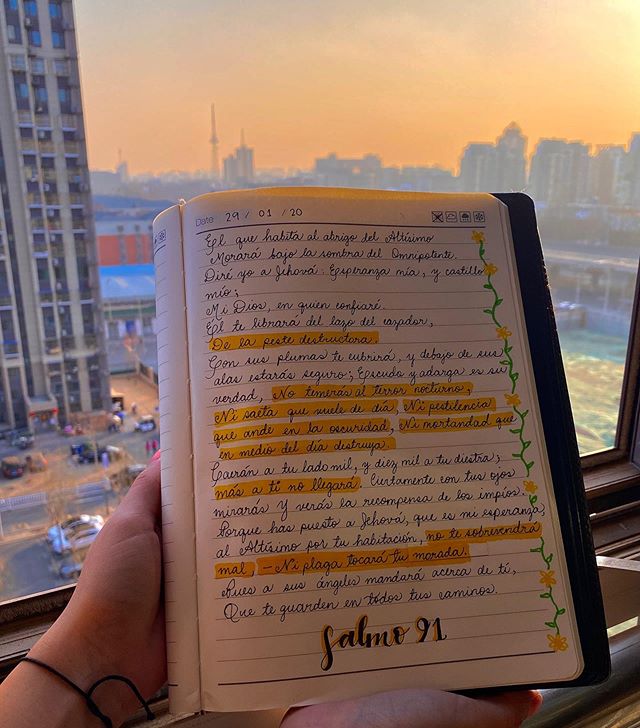 Date 29 / 01 / 20
El que habita al abrigo del Altísimo
Morará bajo la sombra del Omnipotente.
Diré yo a Jehová: Esperanza mía, y castillo
mío;
Mi Dios, en quien confiaré.
El te librará del lazo del cazador,
De la peste destructora.
Con sus plumas te cubrirá, y debajo de sus
alas estarás seguro; Escudo y adarga es su
verdad, No temerás al terror nocturno,
Ni saeta que vuele de día, Ni pestilencia
que ande en la oscuridad, Ni mortandad que
en medio del día destruya.
Caerán a tu lado mil, y diez mil a tu diestra;
más a tí no llegará. Ciertamente con tus ojos
mirarás y verás la recompensa de los impíos.
Porque has puesto a Jehová, que es mi esperanza,
al Altísimo por tu habitación, no te sobrevendrá
mal, - Ni plaga tocará tu morada.
Pues a sus ángeles mandará acerca de tí,
Que te guarden en todos tus caminos.
Salmo 91